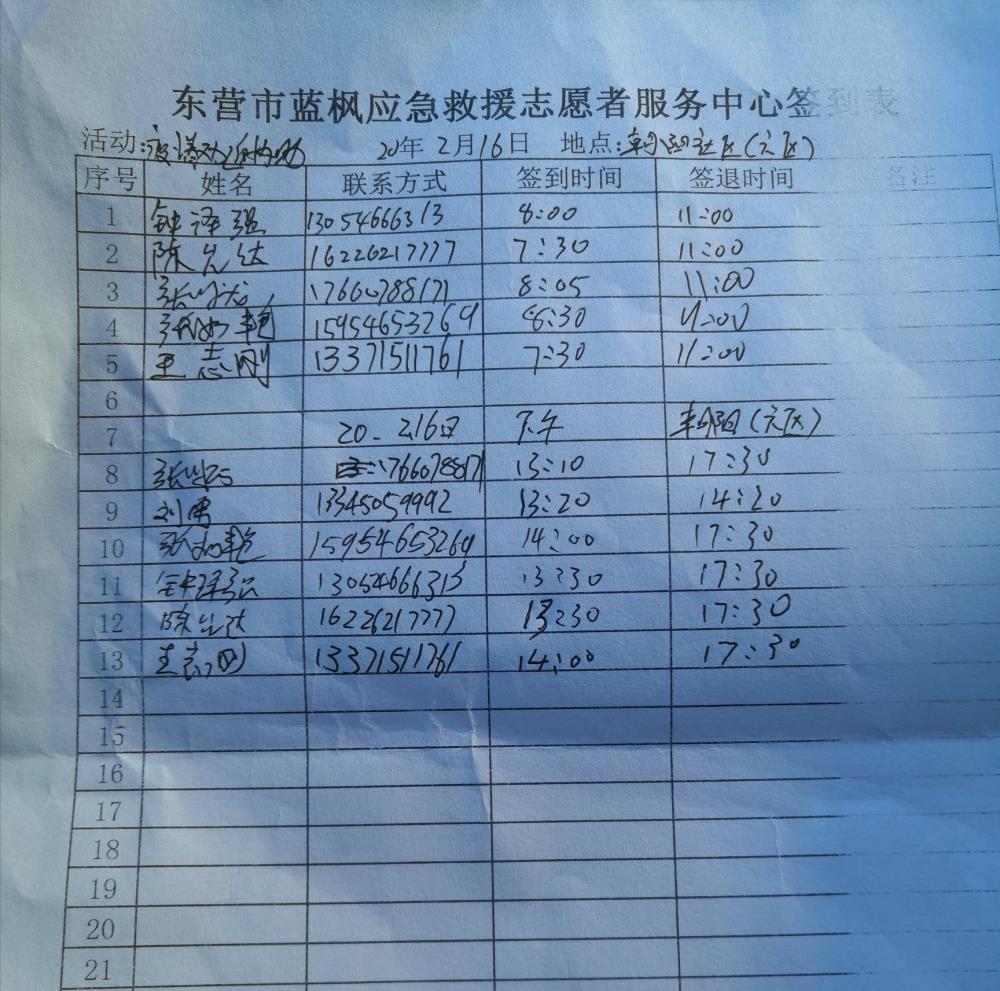 东营市蓝枫应急救援志愿者服务中心签到表
活动: 20年 2月16日 地点:朝阳社区(六区)
序号 姓名 联系方式 签到时间 签退时间 备注
1 钟泽强 13054666313 8:00 11:00
2 陈先达 16226217777 7:30 11:00
3 17660788171 8:05 11:00
4 15954653269 8:30 11:00
5 王志刚 13371511761 7:30 11:00
6
7 20. 2.16日 下午 朝阳(六区)
8 17660788171 13:10 17:30
9 刘勇 13345059992 13:20 14:20
10 15954653269 14:00 17:30
11 钟泽强 13054666313 13:30 17:30
12 陈先达 16226217777 13:30 17:30
13 王志刚 13371511761 14:00 17:30
14
15
16
17
18
19
20
21